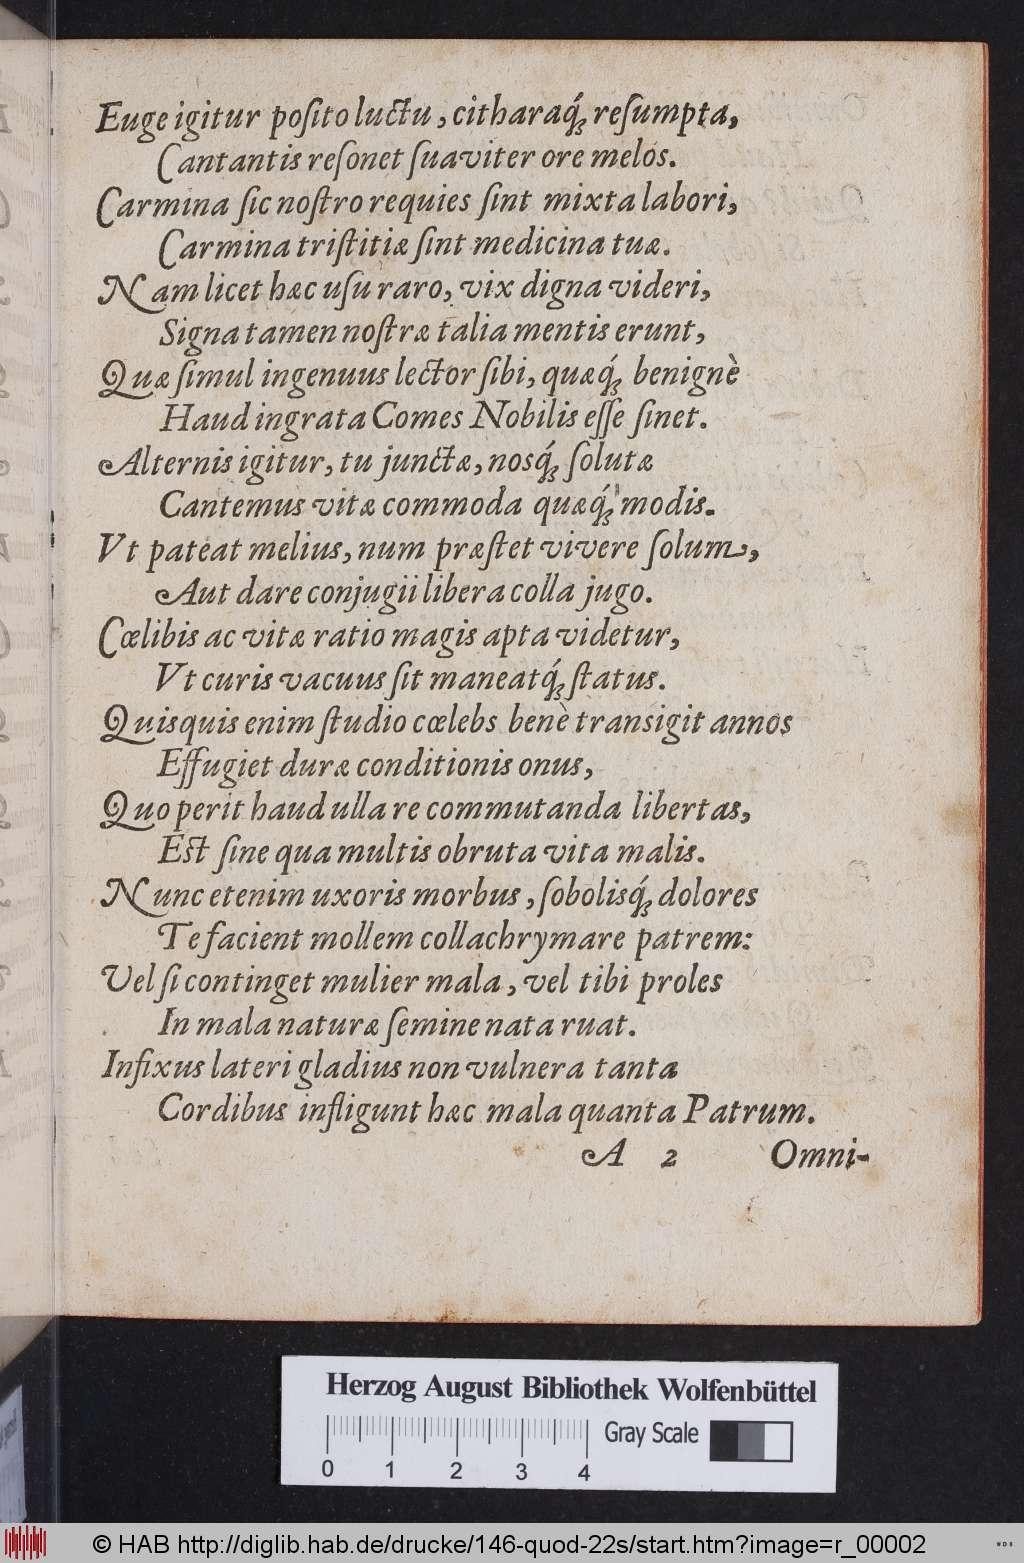 Euge igitur poſito luctu, citharaq́; reſumpta,
Cantantis reſonet ſuaviter ore melos.
Carmina ſic noſtro requies ſint mixta labori,
Carmina triſtitiæ ſint medicina tuæ.
Nam licet hæc uſu raro, vix digna videri,
Signa tamen noſtræ talia mentis erunt,
Quæ ſimul ingenuus lector ſibi, quæq́; benignè
Haud ingrata Comes Nobilis eſſe ſinet.
Alternis igitur, tu junctæ, nosq́; ſolutæ
Cantemus vitæ commoda quæq́; modis.
Vt pateat melius, num præſtet vivere ſolum,
Aut dare conjugii libera colla jugo.
Cœlibis ac vitæ ratio magis apta videtur,
Vt curis vacuus ſit maneatq́; ſtatus.
Quisquis enim ſtudio cœlebs benè transigit annos
Effugiet duræ conditionis onus,
Quo perit haud ulla re commutanda libertas,
Eſt ſine qua multis obruta vita malis.
Nunc etenim uxoris morbus, ſobolisq́; dolores
Te facient mollem collachrymare patrem:
Vel ſi continget mulier mala, vel tibi proles
In mala naturæ ſemine nata ruat.
Infixus lateri gladius non vulnera tanta
Cordibus infligunt hæc mala quanta Patrum.
A 2 Omni-
Herzog August Bibliothek Wolfenbüttel
Gray Scale
0 1 2 3 4
© HAB http://diglib.hab.de/drucke/146-quod-22s/start.htm?image=r_00002